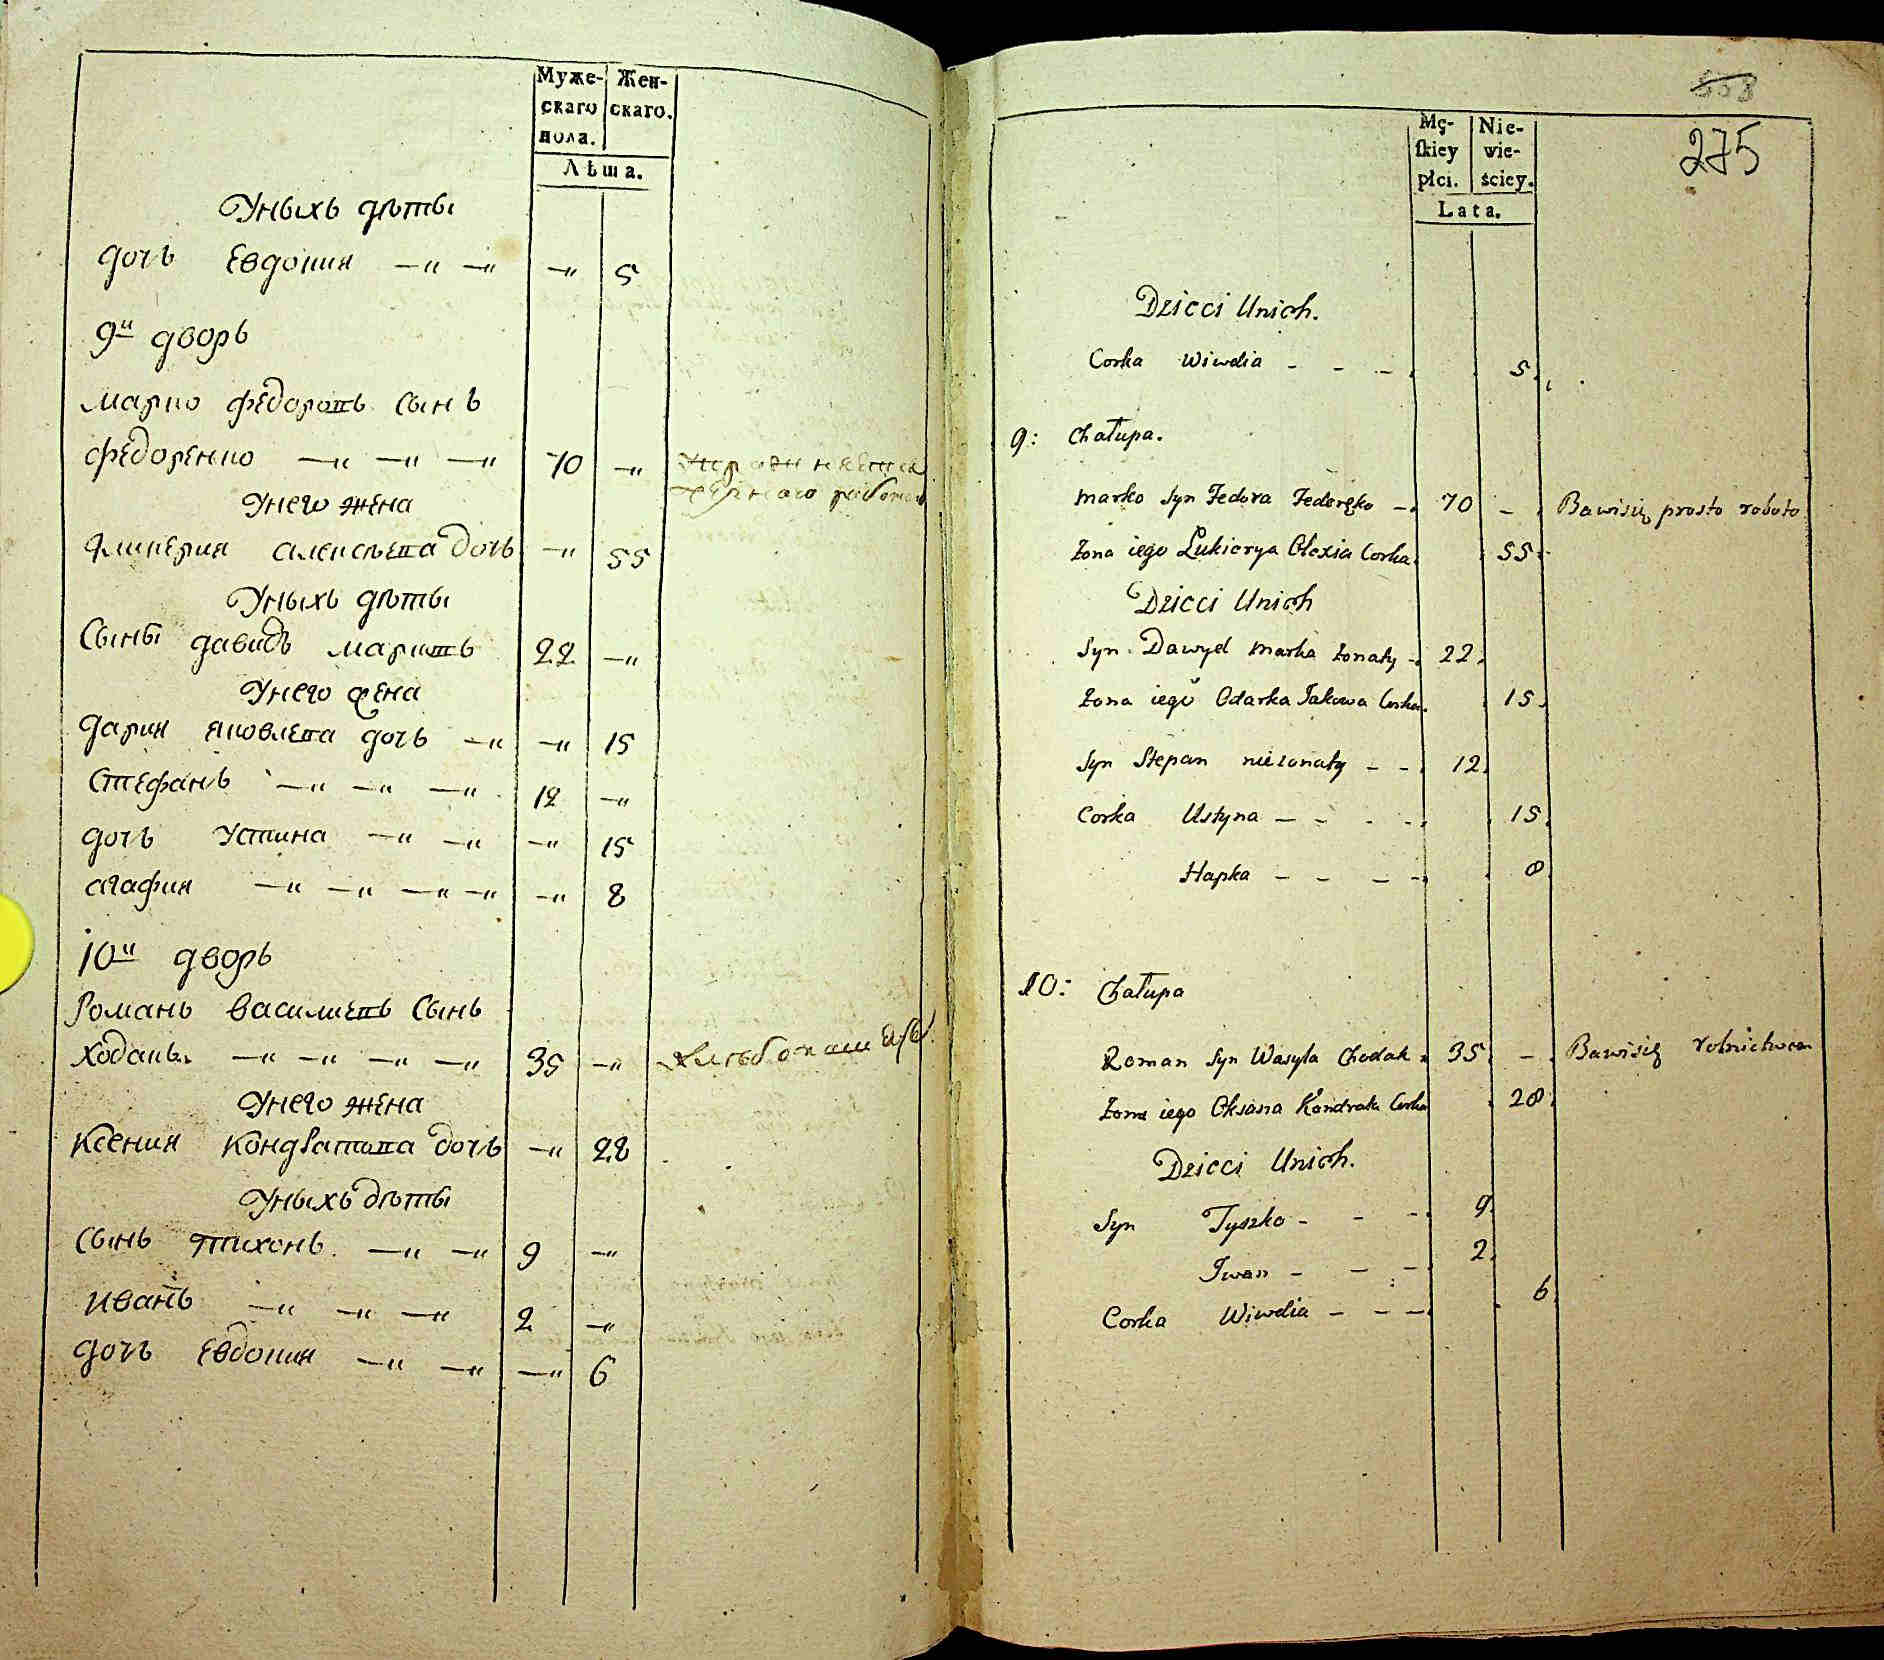 Муже-
скаго
пола.
Жен-
скаго.
Лѣта.
Уныхъ дѣты
дочь Евдокия —„ —„ —„ 5
9й дворъ
марко федоровъ сынъ
федоренко —„ —„ —„ 70 —„
Унего жена
Алексѣева дочь —„ 55
Уныхъ дѣты
Сыны давидъ марковъ 22 —„
Унего жена
дария яковлева дочь —„ —„ 15
Стефанъ —„ —„ —„ 12 —„
дочь устина —„ —„ —„ 15
агафия —„ —„ —„ —„ —„ 8
10й дворъ
Романъ василиевъ Сынъ
Ходакъ —„ —„ —„ —„ 35 —„
Унего жена
Ксения Кондратова дочь —„ 28
Уныхъ дѣты
Сынъ тихонъ —„ —„ 9 —„
иванъ —„ —„ —„ 2 —„
дочь Евдокия —„ —„ —„ 6
558
275
Mę-
ſkiey
płci.
Nie-
wie-
ściey.
Lata.
Dzieci Unich.
Corka Wiwdia - - - 5.
9: Chałupa.
Marko Syn Fedora Federęko - 70 - Bawisię prosto roboto
Zona iego Lukierya Olexia Corka. 55.
Dzieci Unich
Syn Dawyd Marka żonaty - 22.
Zona iego Odarka Jakowa Corka. 15.
Syn Stepan nieżonaty - - 12.
Corka Ustyna - - - - 15.
Hapka - - - - 8
10: Chałupa
Roman Syn Wasyla Chodak 35. - Bawisię rolnictwem
Zona iego Oksana Kondrata Corka 28.
Dzieci Unich.
Syn Tyszko - - - 9.
Iwan - - - 2.
Corka Wiwdia - - - 6.